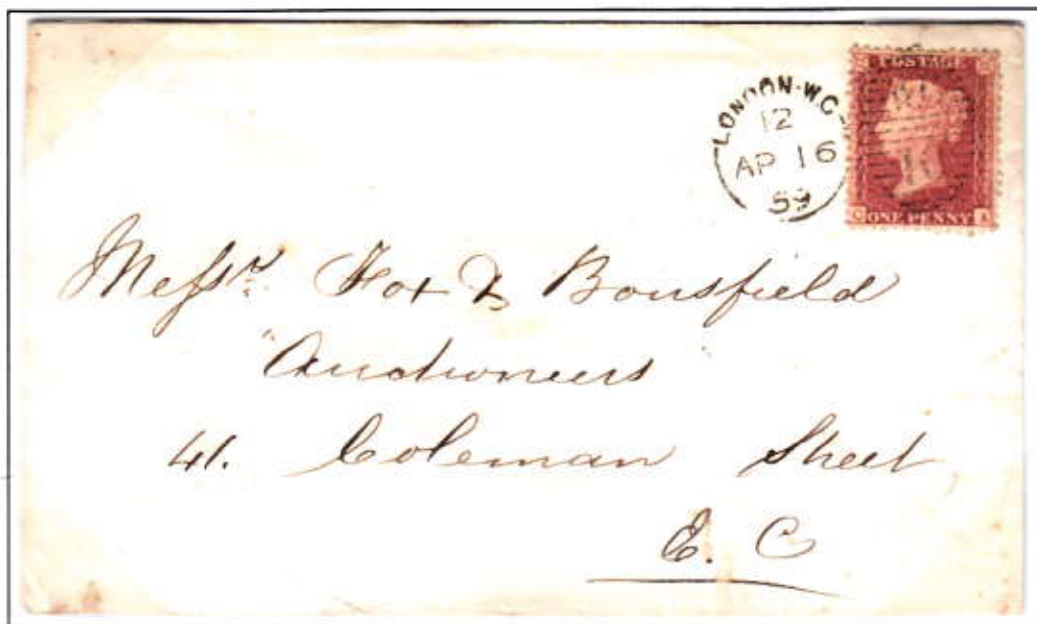 POSTAGE
LONDON·W.C
12
AP 16
59
ONE PENNY
Messrs. Fox & Bousfield
Auctioneers
41. Coleman Street
E. C